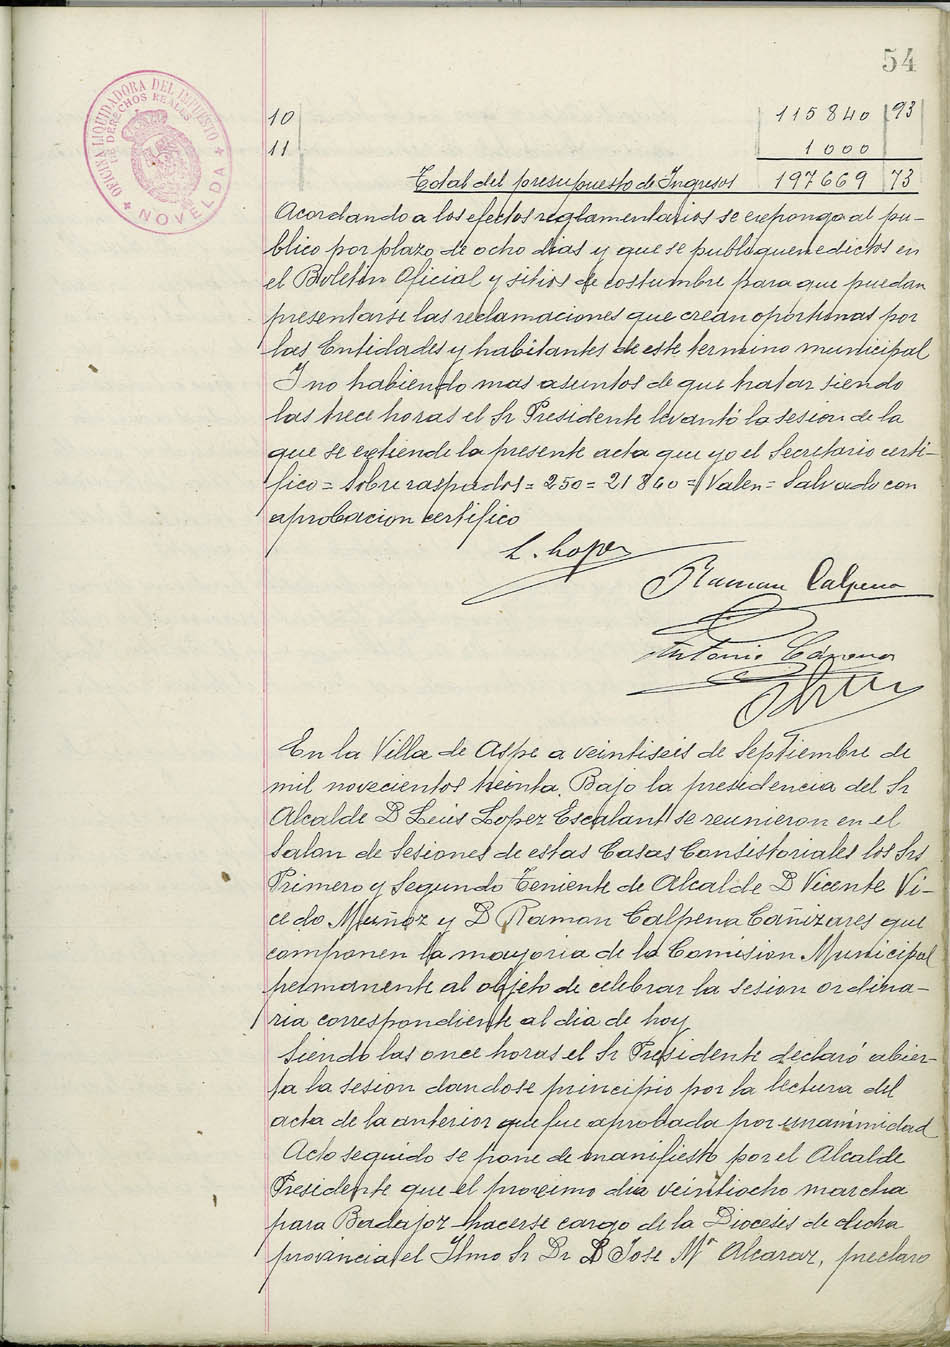 54
OFICINA LIQUIDADORA DEL IMPUESTO
DE DERECHOS REALES
NOVELDA
10 115840 93
11 1000
Total del presupuesto de Ingresos 197669 73
Acordando a los efectos reglamentarios se exponga al pu-
blico por plazo de ocho dias y que se publiquen edictos en
el Boletin Oficial y sitios de costumbre para que puedan
presentarse las reclamaciones que crean oportunas por
las Entidades y habitantes de este termino municipal
Y no habiendo mas asuntos de que tratar siendo
las trece horas el Sr Presidente levantó la sesion de la
que se extiende la presente acta que yo el Secretario certi-
fico = Sobreraspados = 250 = 21860 = Valen = Salvado con
aprobacion certifico
L. Lopez
Ramon Calpena
Antonio
En la Villa de Aspe a veintiseis de Septiembre de
mil novecientos treinta. Bajo la presidencia del Sr
Alcalde D Luis Lopez Escalant se reunieron en el
Salon de Sesiones de estas Casas Consistoriales los Srs
Primero y Segundo Teniente de Alcalde D Vicente Vi-
cedo Muñoz y D Ramon Calpena Cañizares que
componen la mayoria de la Comision Municipal
permanente al objeto de celebrar la sesion ordina-
ria correspondiente al dia de hoy
Siendo las once horas el Sr Presidente declaró abier-
ta la sesion dandose principio por la lectura del
acta de la anterior que fue aprobada por unanimidad
Acto seguido se pone de manifiesto por el Alcalde
Presidente que el proximo dia veintiocho marcha
para Badajoz hacerse cargo de la Diocesis de dicha
provincia el Ilmo Sr Dr D Jose Mª Alcaraz, preclaro